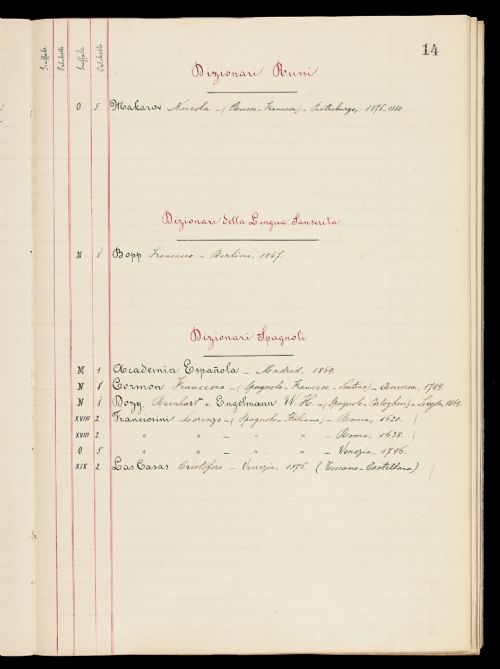 14
Scaffale Palchetto Scaffale Palchetto
Dizionari Russi
O 5 Makarov Niccola – (Russo-Francese) – Pietroburgo, 1876-1880.
Dizionari della Lingua Sanscrita
N 8 Bopp Francesco – Berlino, 1867.
Dizionari Spagnoli
M 1 Academia Española – Madrid, 1869.
N 8 Cormon Francesco – (Spagnolo-Francese-Latino) – Anversa, 1769.
N 8 Dozy Reinhart e Engelmann W. H. – (Spagnolo-Portoghese) – Leyda, 1869.
XVIII 2 Franciosini Lorenzo – (Spagnolo-Italiano) – Roma, 1620.
XVIII 2 " " – " " – Roma, 1638.
O 5 " " – " " – Venezia, 1796.
XIX 2 Las Casas Cristoforo – Venezia, 1576. (Toscano-Castellano)